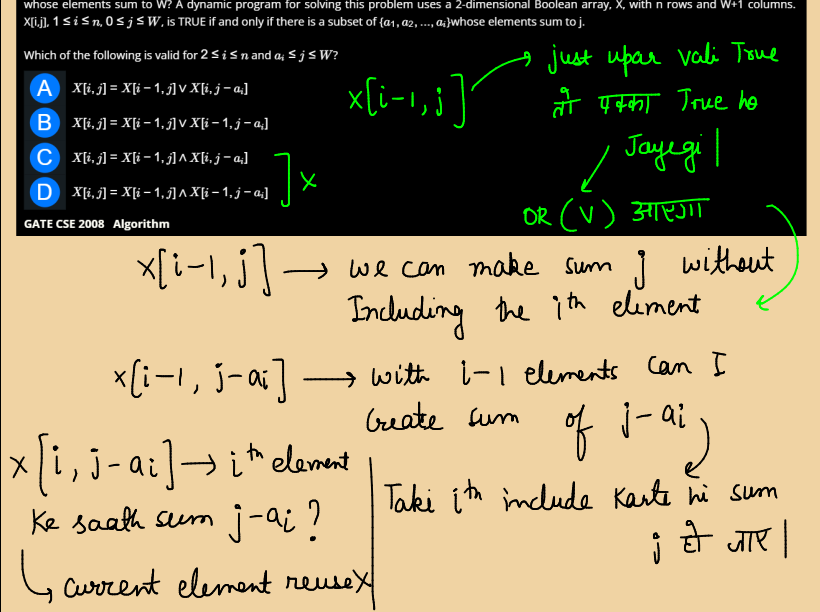 whose elements sum to W? A dynamic program for solving this problem uses a 2-dimensional Boolean array, X, with n rows and W+1 columns.
X[i,j], 1 ≤ i ≤ n, 0 ≤ j ≤ W, is TRUE if and only if there is a subset of {a₁, a₂, ..., aᵢ}whose elements sum to j.
Which of the following is valid for 2 ≤ i ≤ n and aᵢ ≤ j ≤ W?
A X[i, j] = X[i − 1, j] ∨ X[i, j − aᵢ]
B X[i, j] = X[i − 1, j] ∨ X[i − 1, j − aᵢ]
C X[i, j] = X[i − 1, j] ∧ X[i, j − aᵢ]
D X[i, j] = X[i − 1, j] ∧ X[i − 1, j − aᵢ]
] x
GATE CSE 2008 Algorithm
x[i-1, j]
just upar vali True
तो पक्का True ho
Jayegi |
OR (v) आएगा
x[i-1, j] → we can make sum j without
Including the iᵗʰ element
x[i-1, j-ai] → with i-1 elements can I
Create sum of j-ai
Taki iᵗʰ include karte hi sum
j हो जाए |
x[i, j-ai] → iᵗʰ element
Ke saath sum j-ai ?
current element reuse X